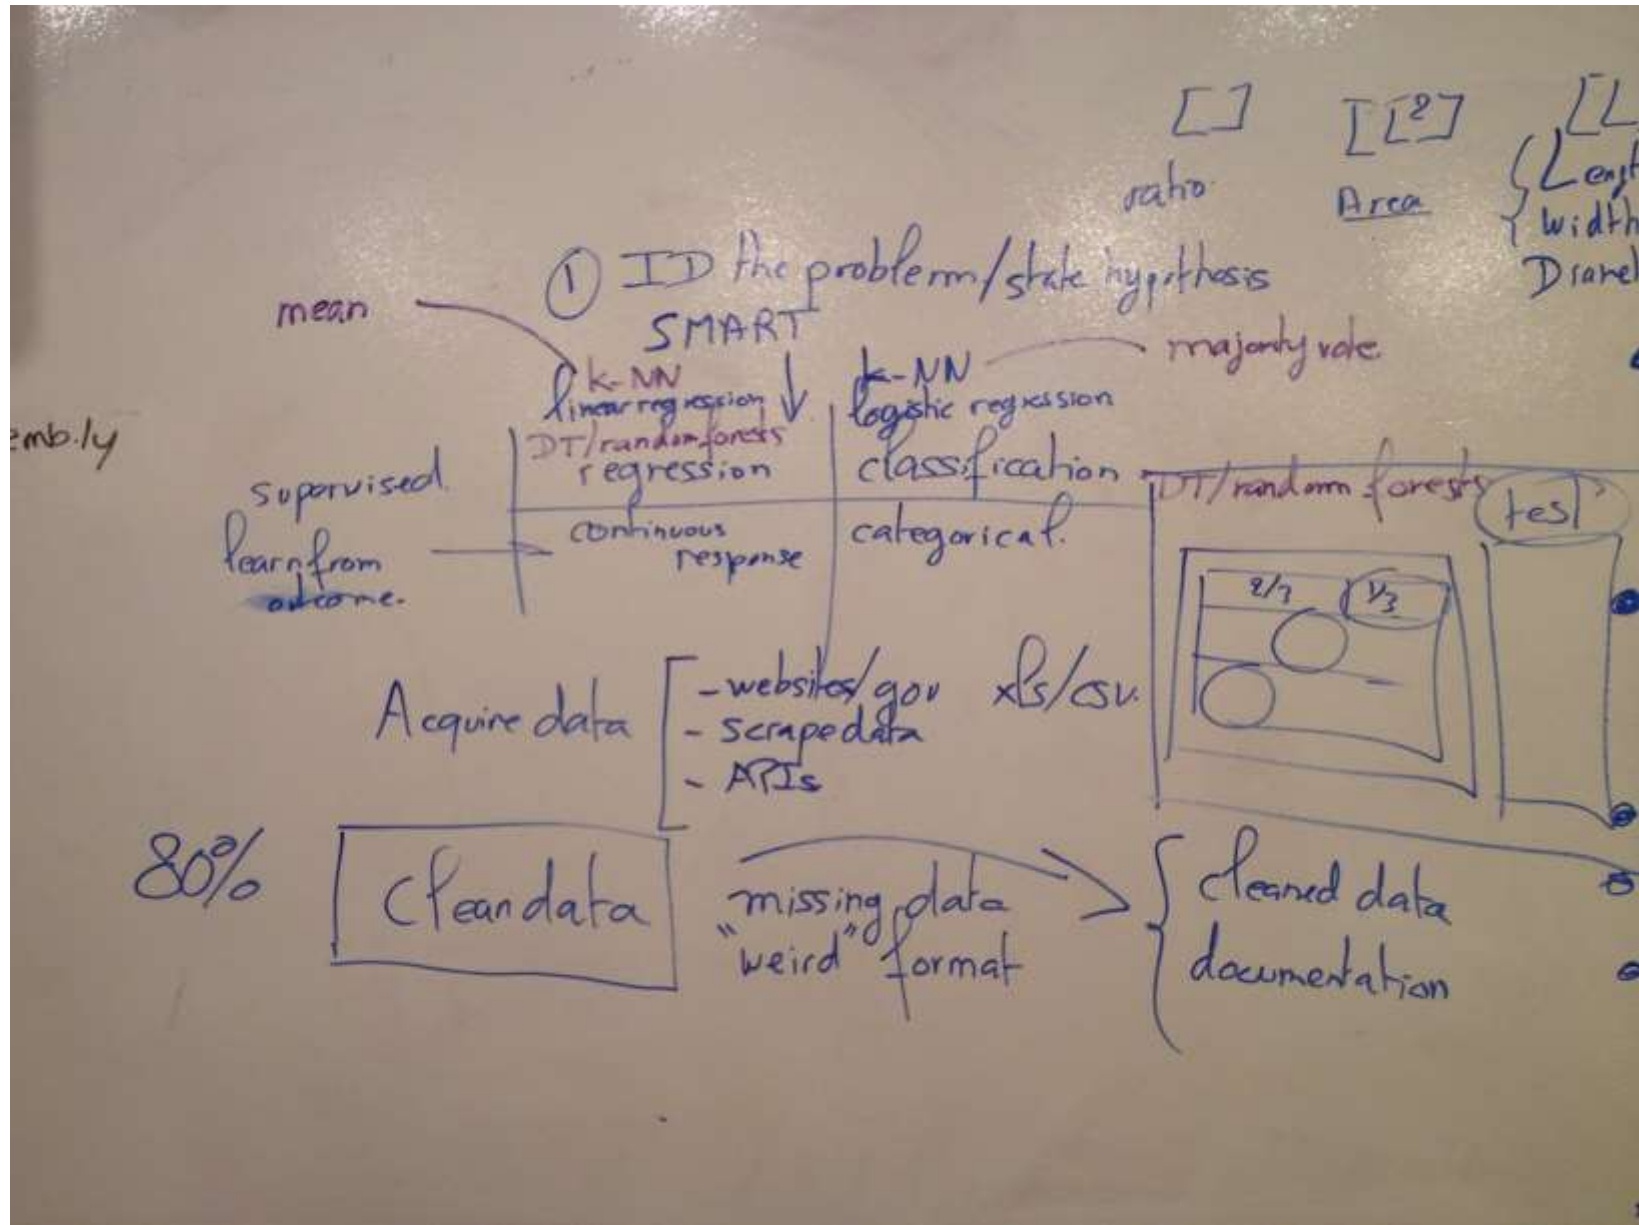 [ ]
[L²]
[L
ratio
Area
Lengt
width
Diamet
① ID the problem/state hypothesis
SMART
mean
k-NN
linear regression
DT/random forests
regression
k-NN
logistic regression
classification
majority vote.
emb.ly
supervised.
learn from
outcome.
continuous
response
categorical.
DT/random forests
test
2/3
1/3
Acquire data
- websites/gov xls/csv.
- scrape data
- APIs
80%
Clean data
missing data
"weird" format
cleaned data
documentation